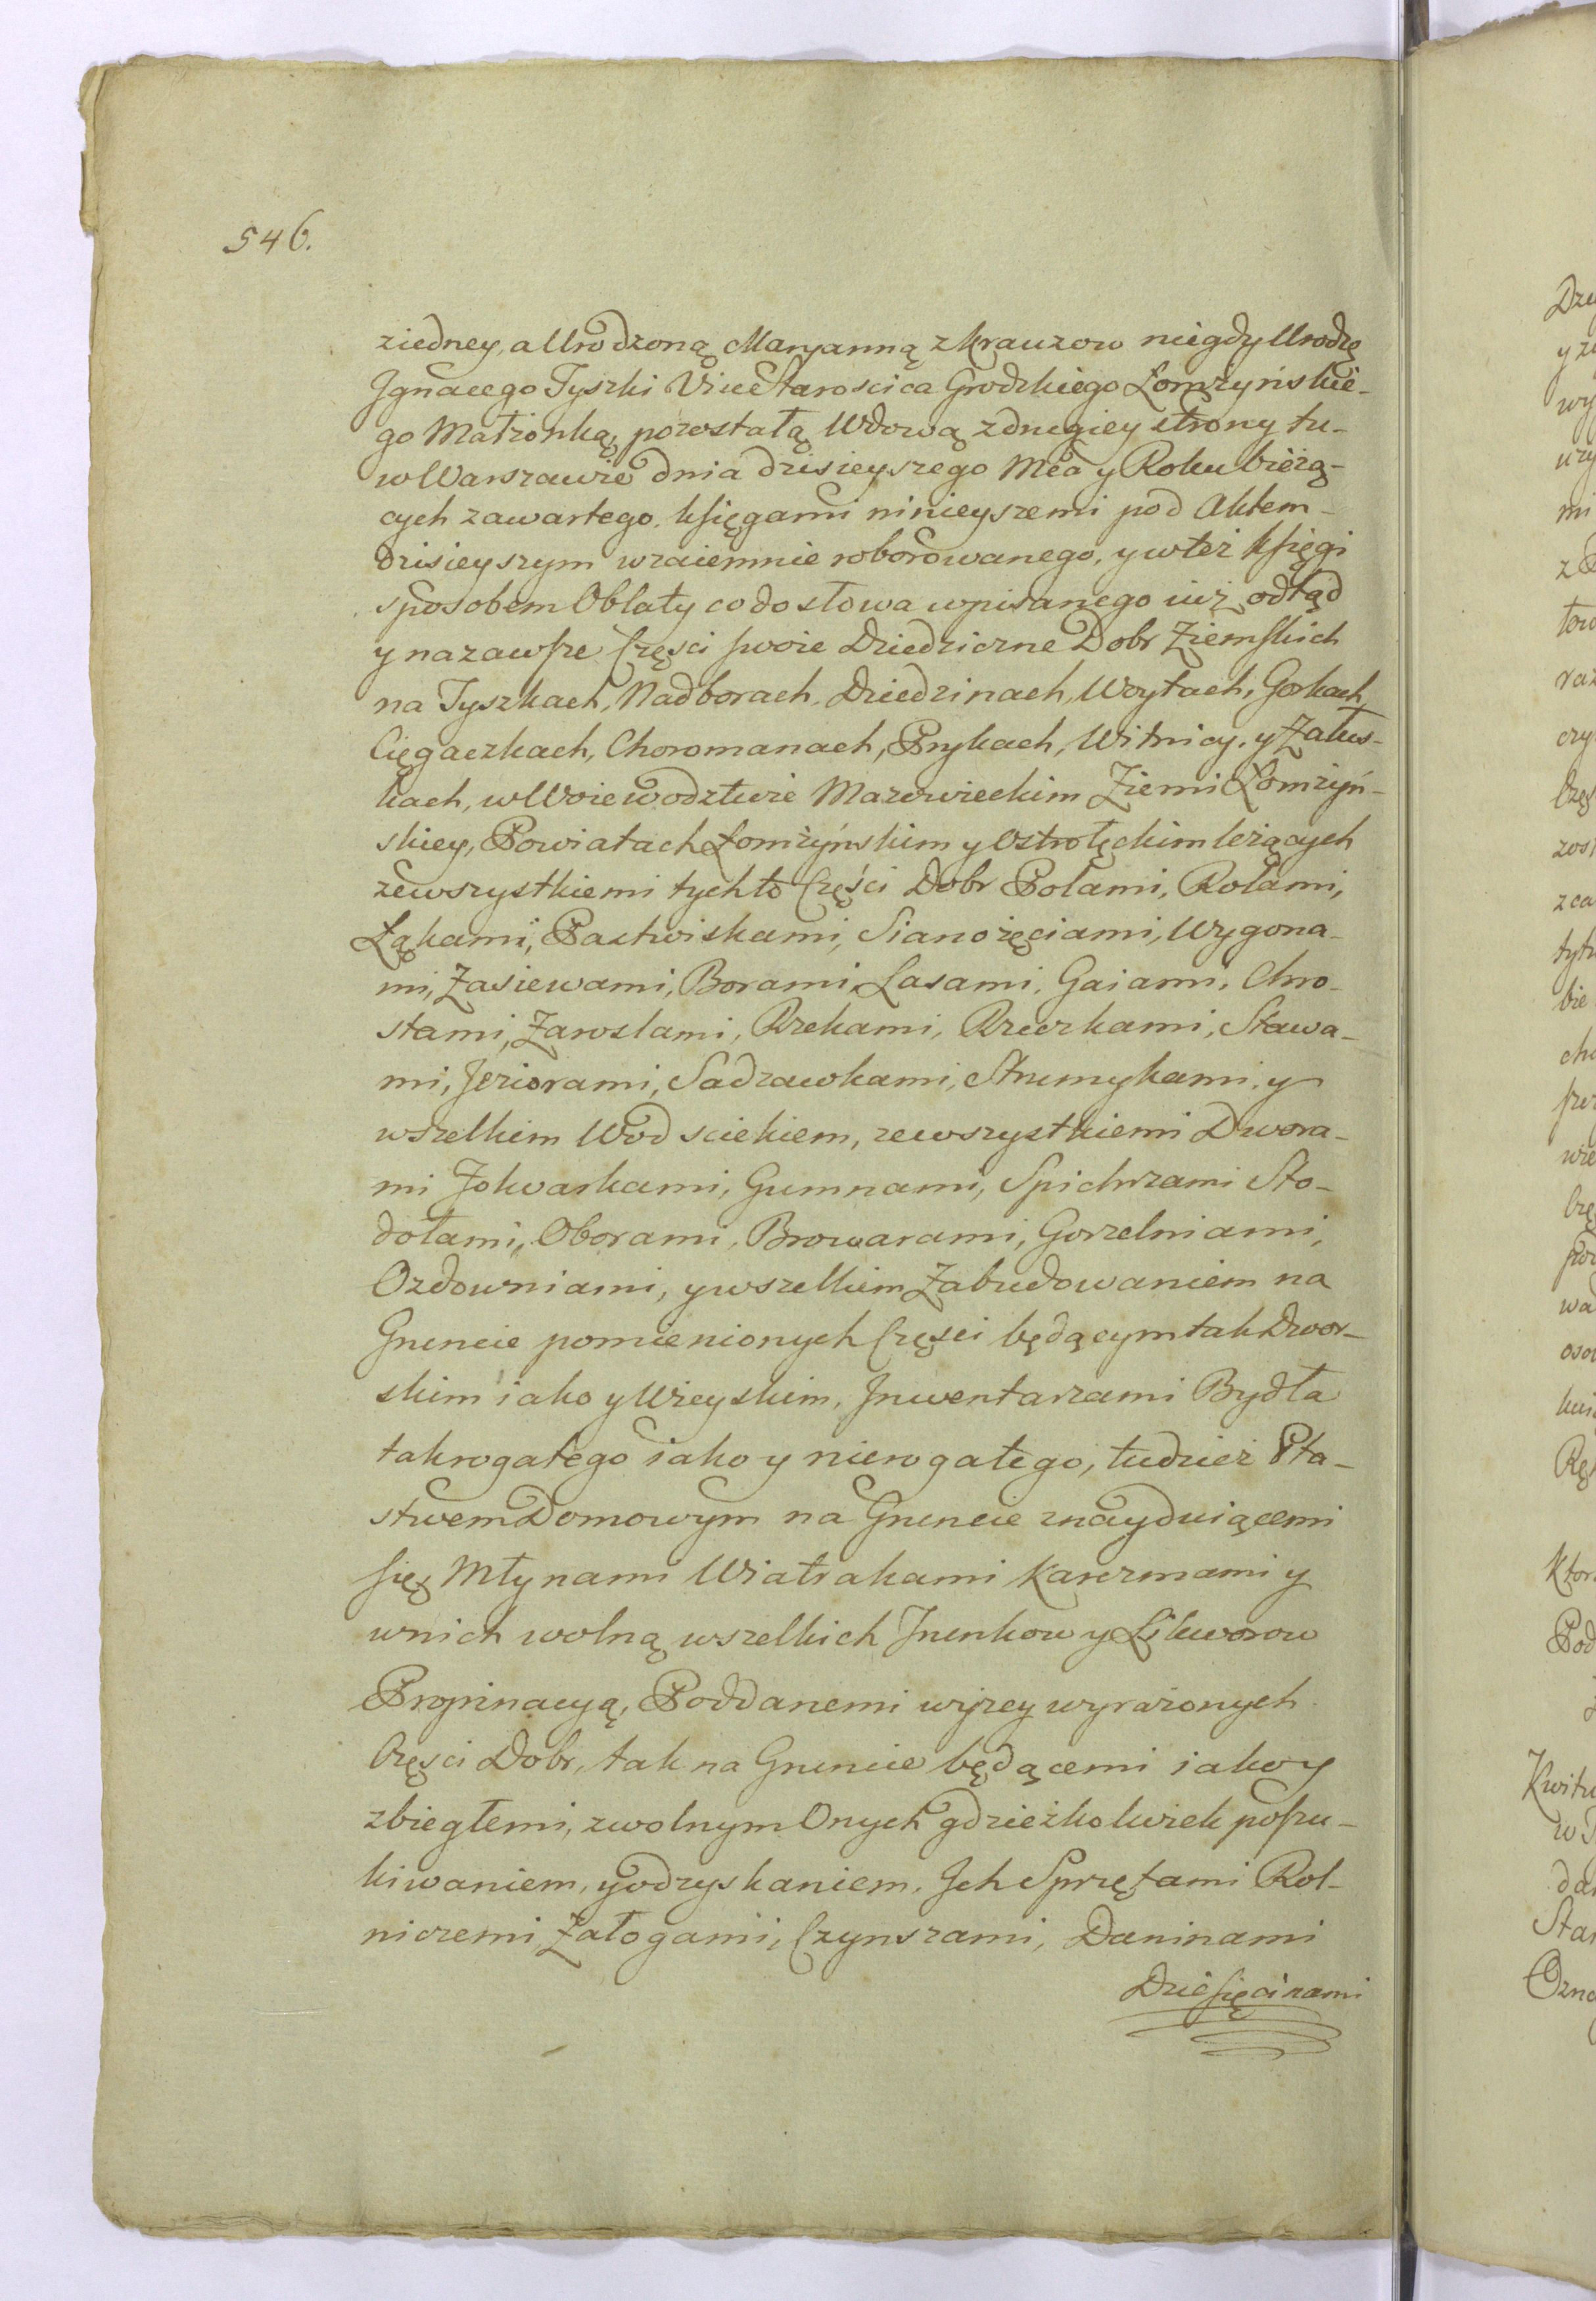 546.
ziedney, a Urodzoną Maryanną z Krauzow niegdy Urodzo
Jgnacego Tyszki ViceStaroscica Grodzkiego Łomżyńskie-
go Małżonką, pozostałą Wdową z drugiey strony tu-
w Warszawie dnia dzisieyszego Mca y Roku bieżą-
cych zawartego. księgami ninieyszemi pod Aktem-
dzisieyszym wzaiemnie roborowanego, y wteż księgi
sposobem Oblaty co do słowa wpisanego iuż odtąd
y nazawsze Części swoie Dziedziczne Dobr Ziemskich
na Tyszkach, Nadborach, Dziedzinach, Woytach, Gorkach,
Cięgaczkach, Choromanach, Prykach, Witnicy, y Załus-
kach, w Woiewodztwie Mazowieckim Ziemi Łomżyń-
skiey, Powiatach Łomżyńskim y Ostrołęckim leżących
zewszystkiemi tychto Części Dobr Polami, Rolami,
Łąkami, Pastwiskami, Sianożęciami, Wygona-
mi, Zasiewami, Borami, Lasami, Gaiami, Chro-
stami, Zaroslami, Rzekami, Rzeczkami, Stawa-
mi, Jeziorami, Sadzawkami, Strumykami, y
wszelkim Wod sciekiem, zewszystkiemi Dwora-
mi Folwarkami, Gumnami, Spichrzami Sto-
dołami, Oborami, Browarami, Gorzelniami,
Ozdowniami, y wszelkim Zabudowaniem na
Gruncie pomienionych Części będącym tak Dwor-
skim iako y Wieyskim, Jnwentarzami Bydła
tak rogatego iako y nierogatego, tudzież Pta-
stwem Domowym na Gruncie znayduiącemi
się, Młynami Wiatrakami Karczmami y
w nich wolną wszelkich Trunkow y Likworow
Propinacyą, Poddanemi wyżey wyrażonych
Części Dobr, tak na Gruncie będącemi iako y
zbiegłemi, z wolnym Onych gdzieżkolwiek poszu-
kiwaniem, y odzyskaniem, Jch Sprzętami Rol-
niczemi Załogami, Czynszami, Daninami
Dziesięcinami